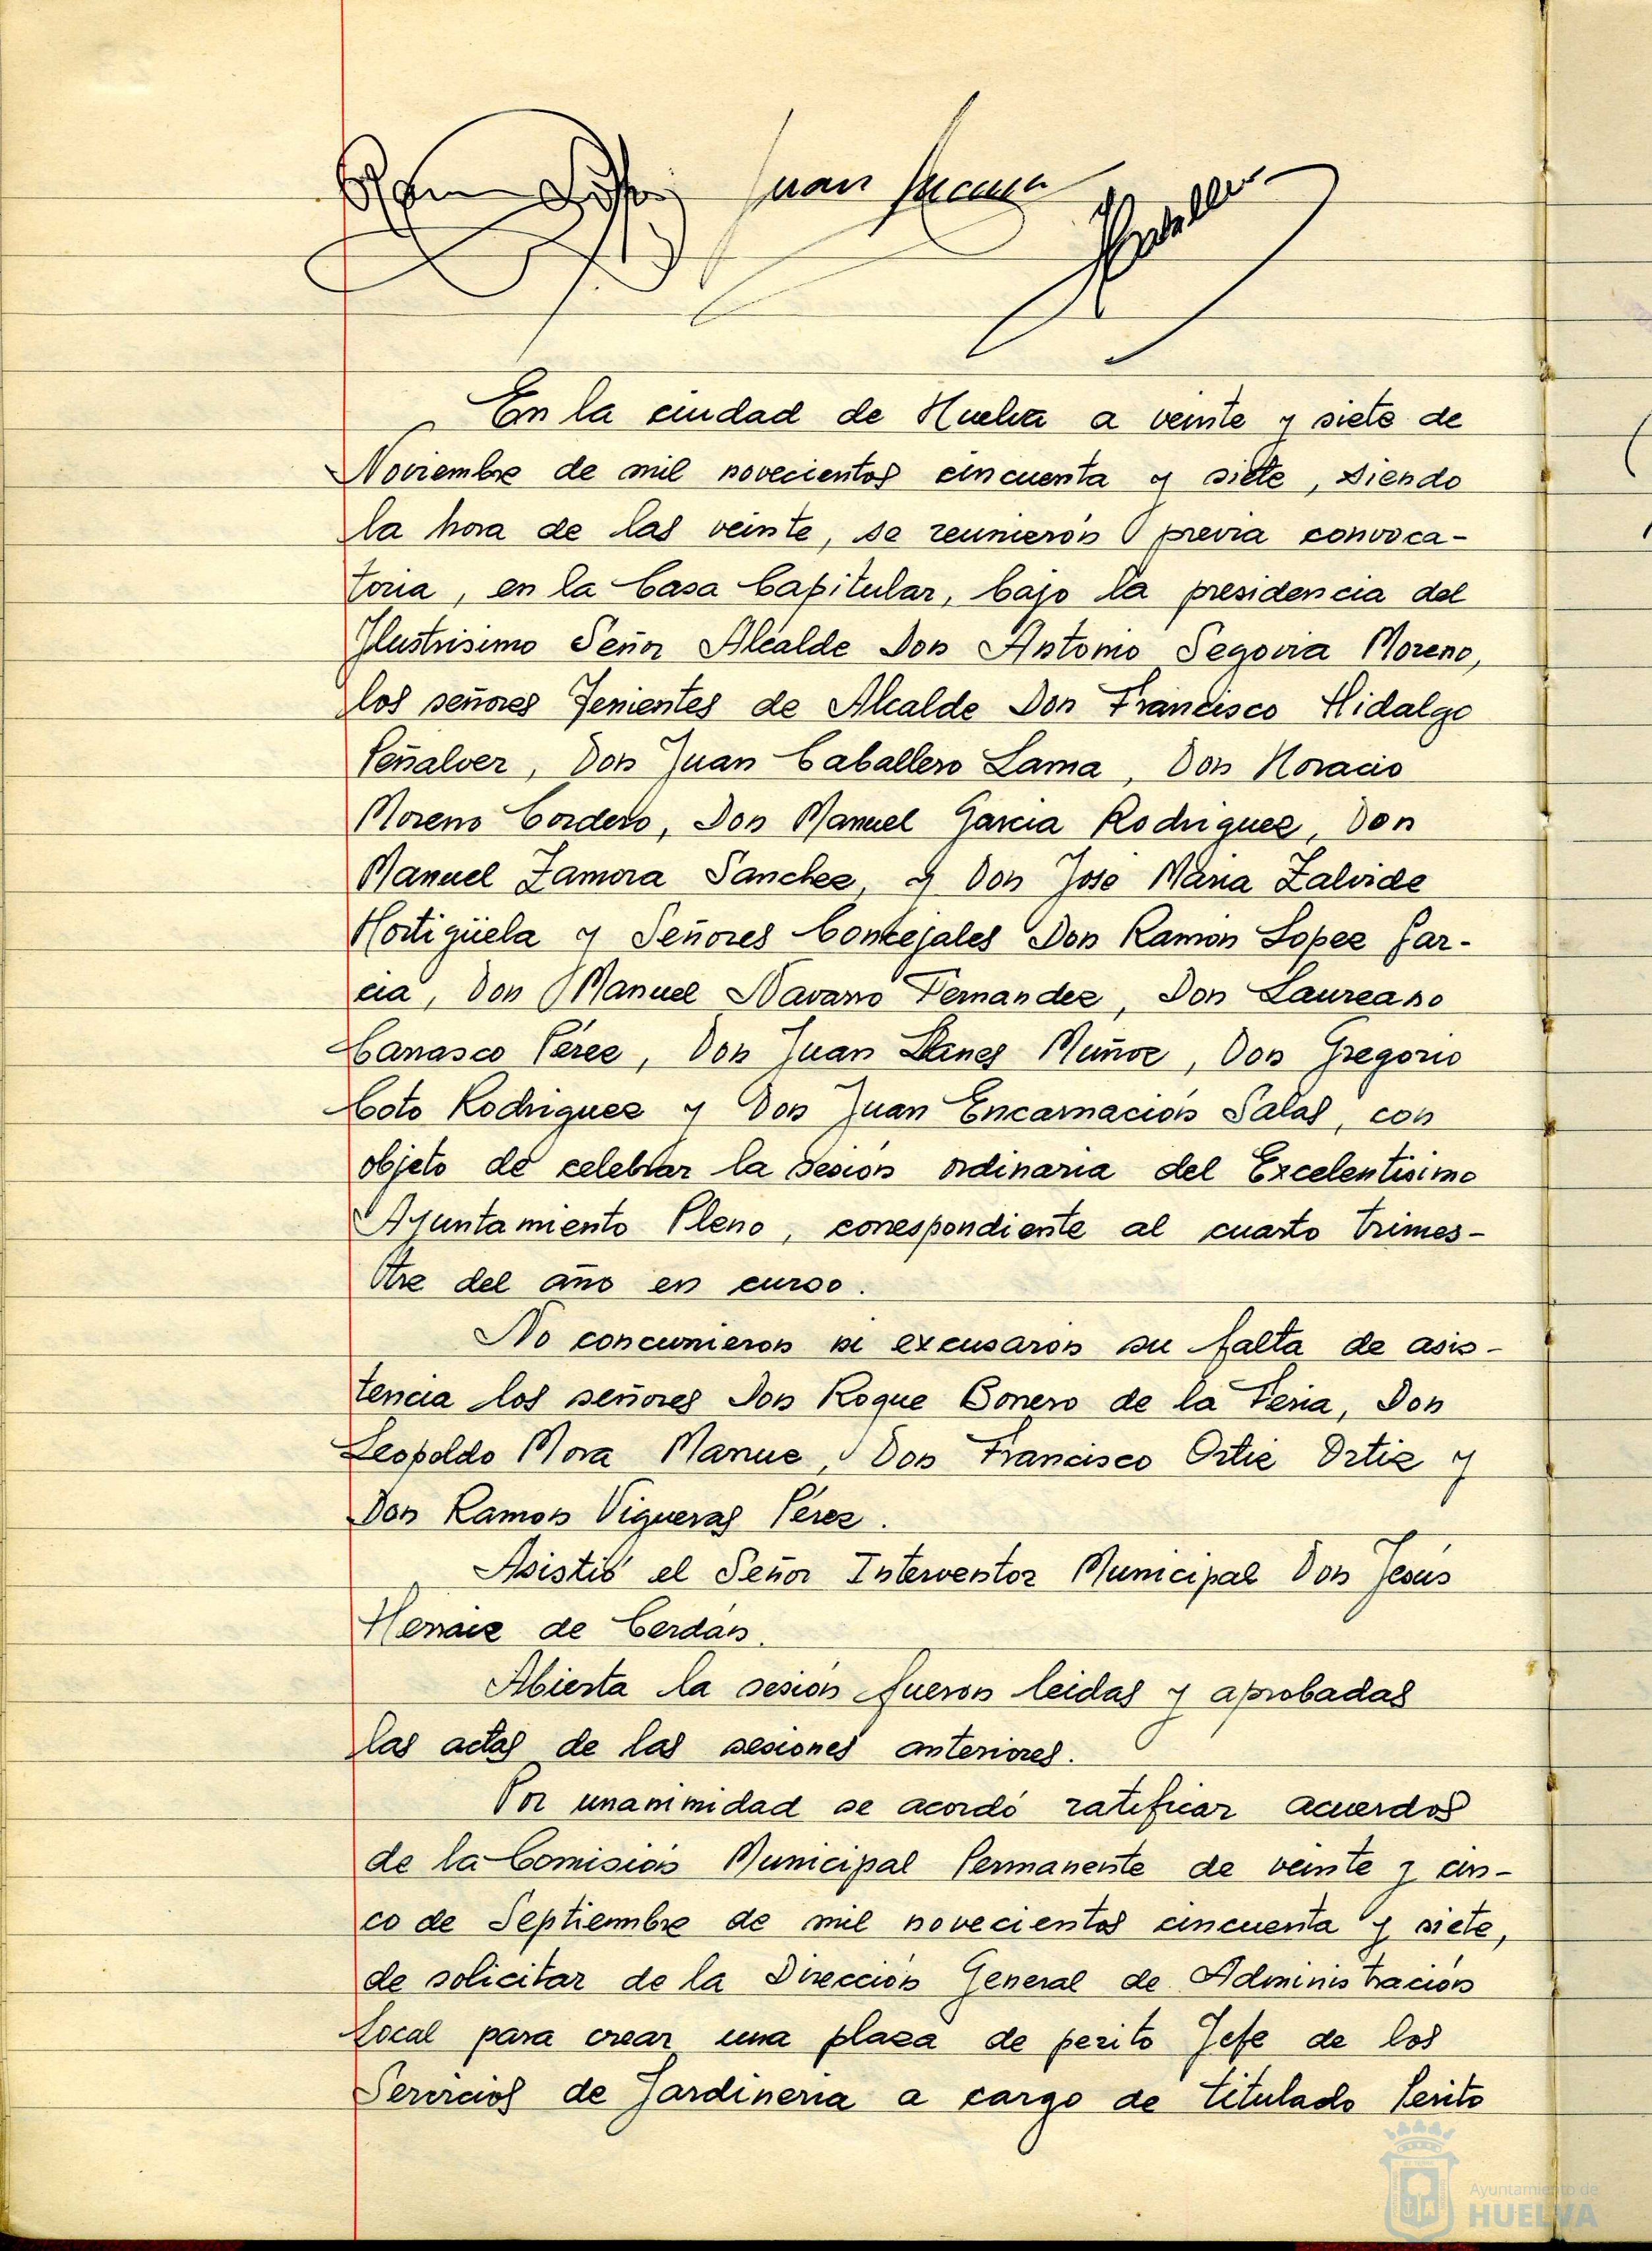 Juan
En la ciudad de Huelva a veinte y siete de
Noviembre de mil novecientos cincuenta y siete, siendo
la hora de las veinte, se reunieron previa convoca-
toria, en la Casa Capitular, bajo la presidencia del
Ilustrisimo Señor Alcalde Don Antonio Segovia Moreno,
los señores Tenientes de Alcalde Don Francisco Hidalgo
Peñalver, Don Juan Caballero Lama, Don Horacio
Moreno Cordero, Don Manuel Garcia Rodriguez, Don
Manuel Zamora Sanchez, y Don José Maria Zalvide
Hortigüela y Señores Concejales Don Ramón Lopez Gar-
cia, Don Manuel Navarro Fernandez, Don Laureano
Carrasco Pérez, Don Juan Llanes Muñoz, Don Gregorio
Coto Rodriguez y Don Juan Encarnación Salas, con
objeto de celebrar la sesión ordinaria del Excelentisimo
Ayuntamiento Pleno, correspondiente al cuarto trimes-
tre del año en curso.
No concurrieron ni excusaron su falta de asis-
tencia los señores Don Roque Bonero de la Feria, Don
Leopoldo Mora, Don Francisco Ortiz Ortiz y
Don Ramon Vigueras Pérez.
Asistió el Señor Interventor Municipal Don Jesús
Herraiz de Cerdán.
Abierta la sesión fueron leidas y aprobadas
las actas de las sesiones anteriores.
Por unanimidad se acordó ratificar acuerdos
de la Comisión Municipal Permanente de veinte y cin-
co de Septiembre de mil novecientos cincuenta y siete,
de solicitar de la Dirección General de Administración
Local para crear una plaza de perito Jefe de los
Servicios de Jardineria a cargo de titulado Perito
Ayuntamiento de
HUELVA